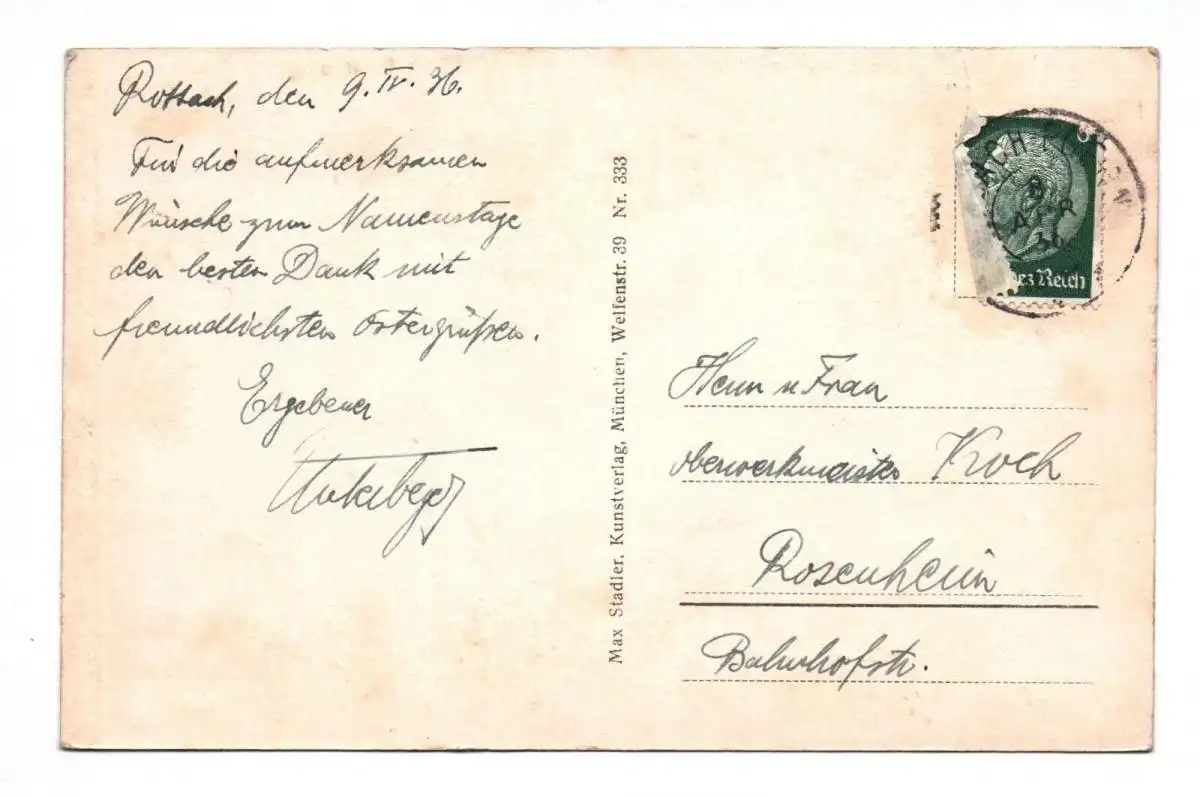 Rottach, den 9. IV. 36.
Für die aufmerksamen
Wünsche zum Namenstage
den besten Dank mit
freundlichsten Ostergrüßen.
Ergebener
Max Stadler, Kunstverlag, München, Welfenstr. 39 Nr. 333
ACH-EGERN
9
APR
36
Reich
Herrn u Frau
Oberwerkmeister Koch
Rosenheim
Bahnhofstr.